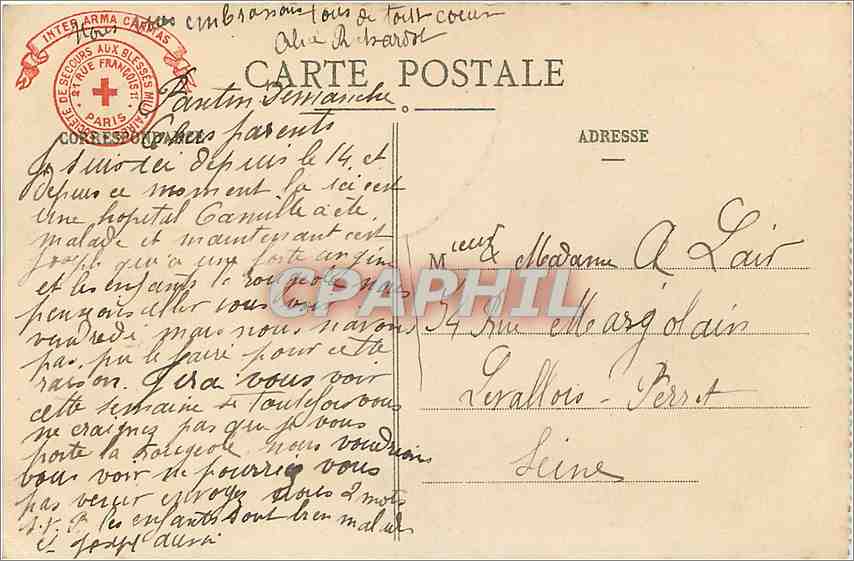 Nous vous embrassons tous de tout coeur
Alice Richardot
INTER ARMA CARITAS
SOCIÉTÉ DE SECOURS AUX BLESSÉS MILITAIRES
21 RUE FRANÇOIS 1er
PARIS
CARTE POSTALE
CORRESPONDANCE
ADRESSE
Pantin Dimanche
Chers parents
Je suis ici depuis le 14, et
depuis ce moment la ici c'est
une hopital Camille a été
malade et maintenant c'est
Joseph qu'a une forte angine
et les enfants la rougeole nous
pensions aller vous voir
vendredi mais nous n'avons
pas pu le faire pour cette
raison. J'irai vous voir
cette semaine si toutefois vous
ne craignez pas que je vous
porte la rougeole nous voudrions
vous voir ne pourriez vous
pas venir envoyez nous 2 mots
S.V.P. les enfants sont bien malades
et Joseph aussi
Mieur & Madame A Lair
34 Rue Margolain
Levallois-Perret
Seine
CPAPHIL